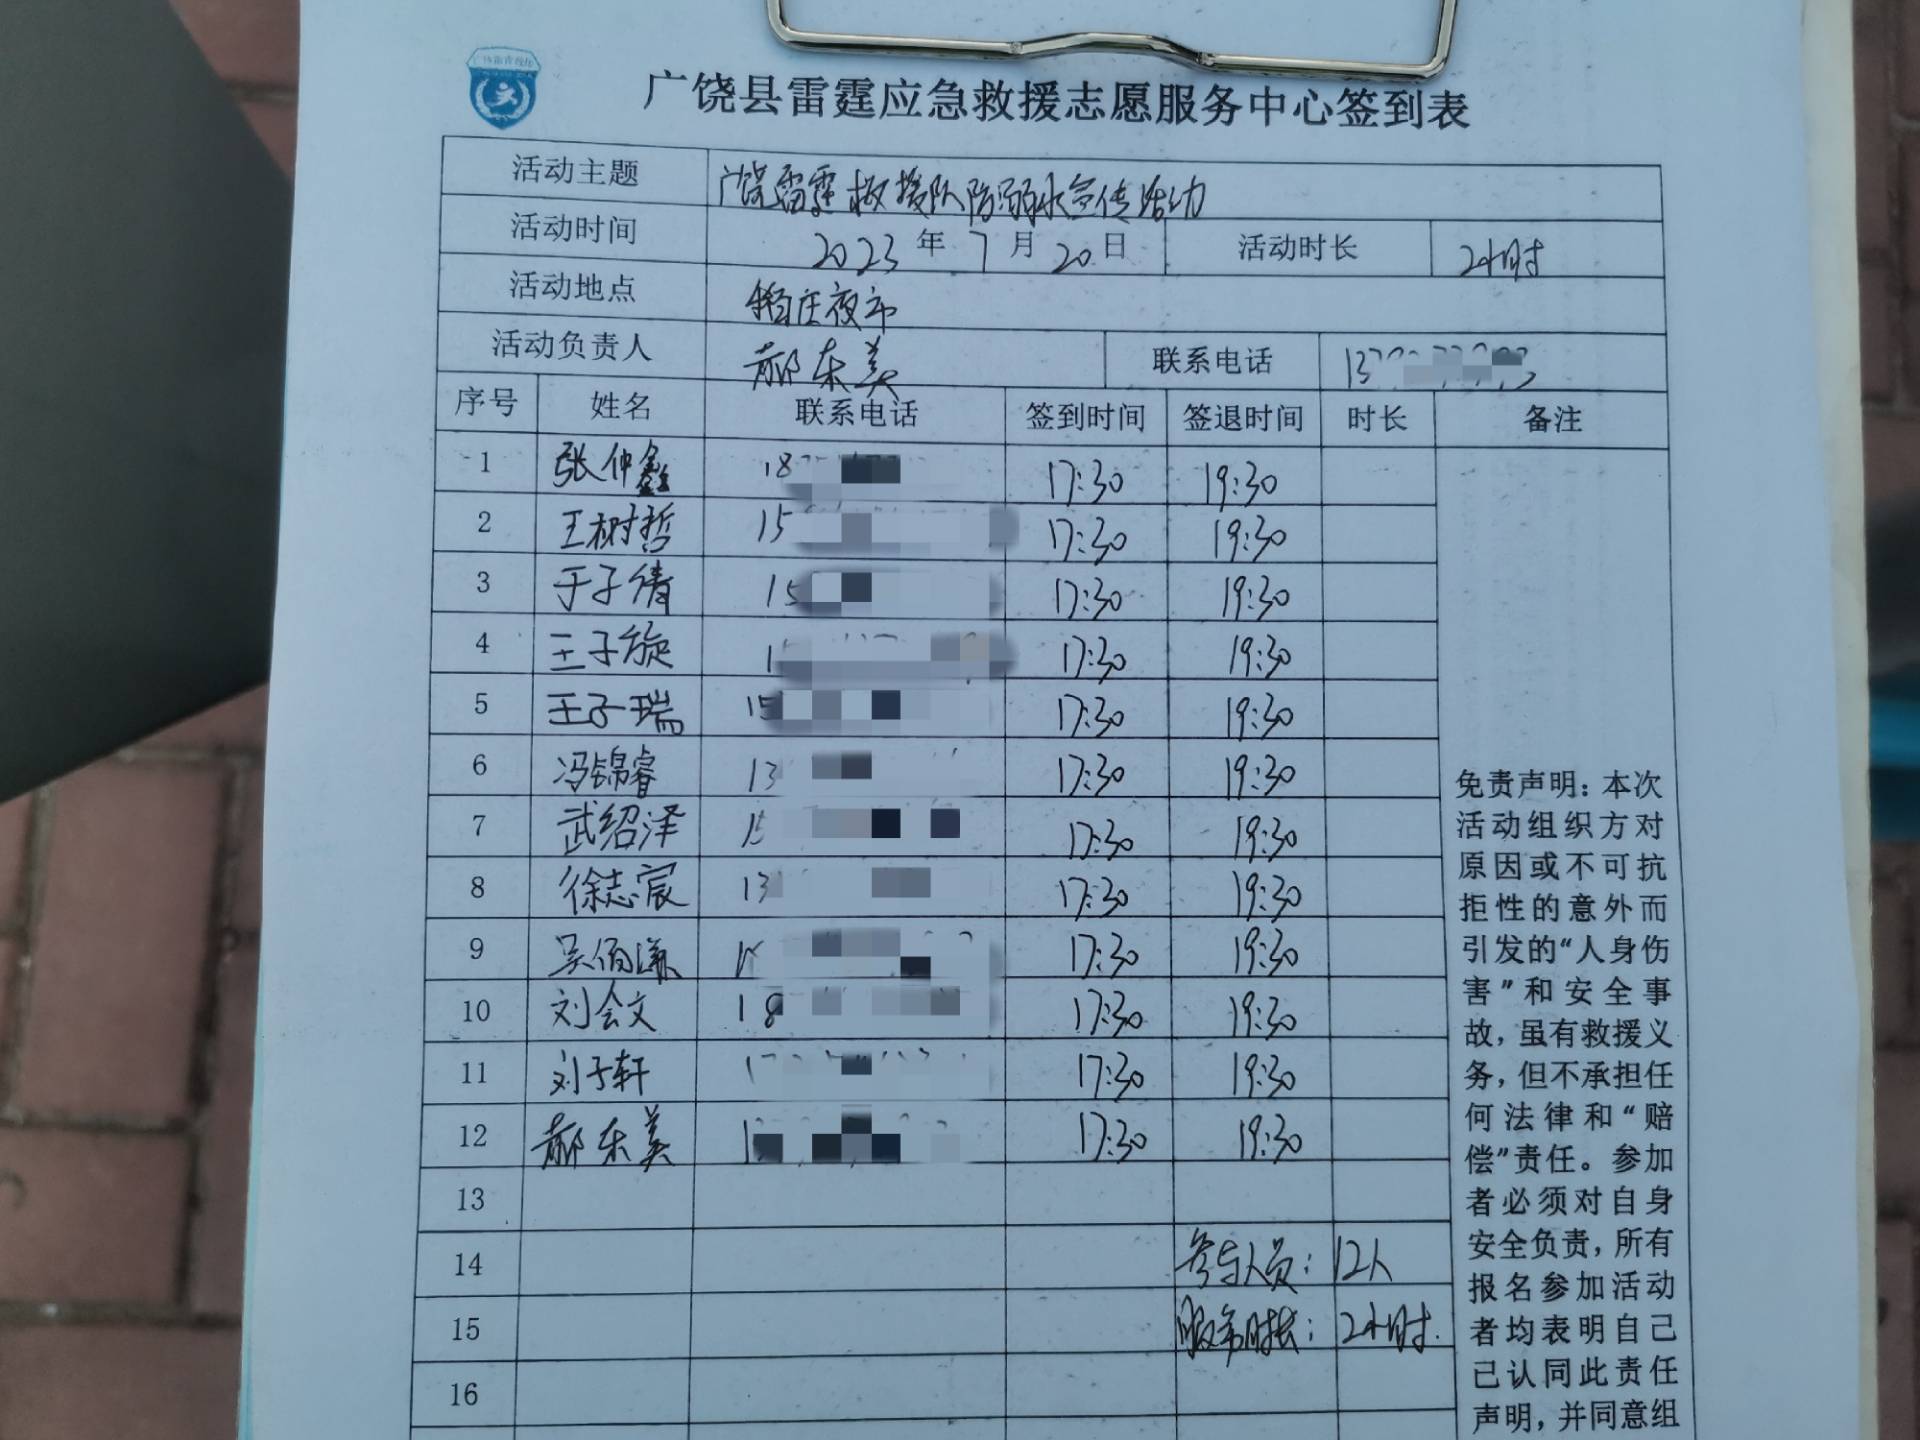 广饶县雷霆应急救援志愿服务中心签到表
活动主题 广饶雷霆救援队防溺水宣传活动
活动时间 2023 年 7 月 20 日 活动时长 2小时
活动地点 稻庄夜市
活动负责人 郝东美 联系电话
序号 姓名 联系电话 签到时间 签退时间 时长 备注
1 张仲鑫 18 17:30 19:30
2 王树哲 15 17:30 19:30
3 于子倩 15 17:30 19:30
4 王子旋 1 17:30 19:30
5 王子瑞 15 17:30 19:30
6 冯锦睿 13 17:30 19:30
7 武绍泽 15 17:30 19:30
8 徐志宸 13 17:30 19:30
9 吴佰谦 17:30 19:30
10 刘会文 18 17:30 19:30
11 刘子轩 1 17:30 19:30
12 郝东美 1 17:30 19:30
13
14 参与人员: 12人
15 服务时长: 2小时.
16
免责声明:本次
活动组织方对
原因或不可抗
拒性的意外而
引发的“人身伤
害”和安全事
故,虽有救援义
务,但不承担任
何法律和“赔
偿”责任。参加
者必须对自身
安全负责,所有
报名参加活动
者均表明自己
已认同此责任
声明,并同意组